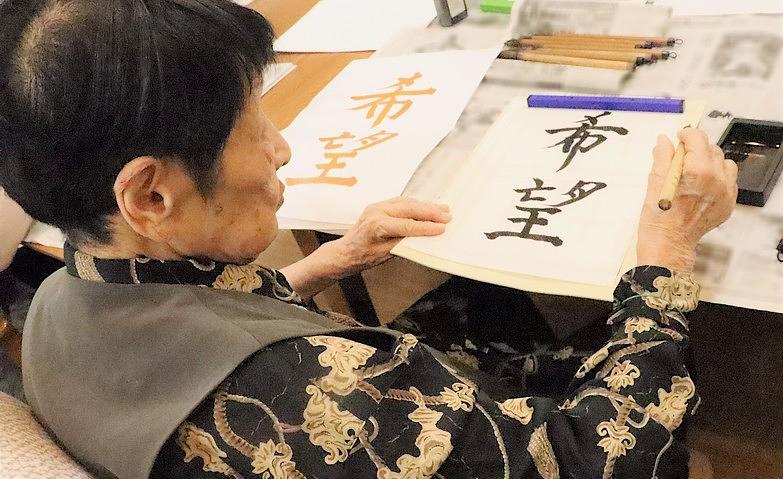 希
望
希
望